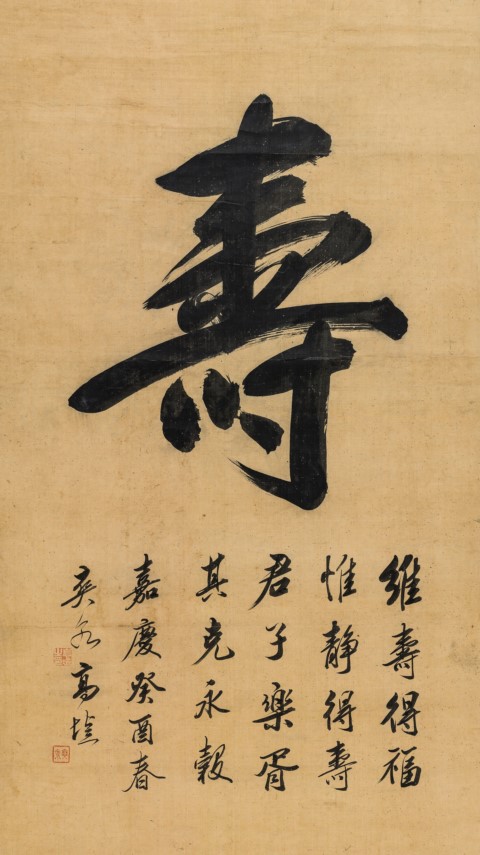 壽
維壽得福
惟静得壽
君子樂胥
其克永穀
嘉慶癸酉春
爽泉高塏